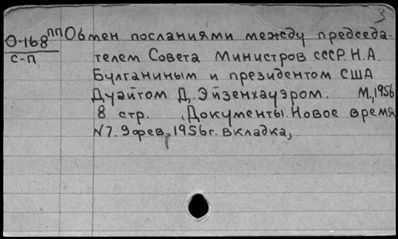 3
О-168 ПП Обмен посланиями между председа-
с-п телем Совета Министров СССР. Н.А.
Булганиным и президентом США
Дуайтом Д. Эйзенхауэром. М., 1956
8 стр. Документы. Новое время
№7. 9 фев, 1956г. вкладка,